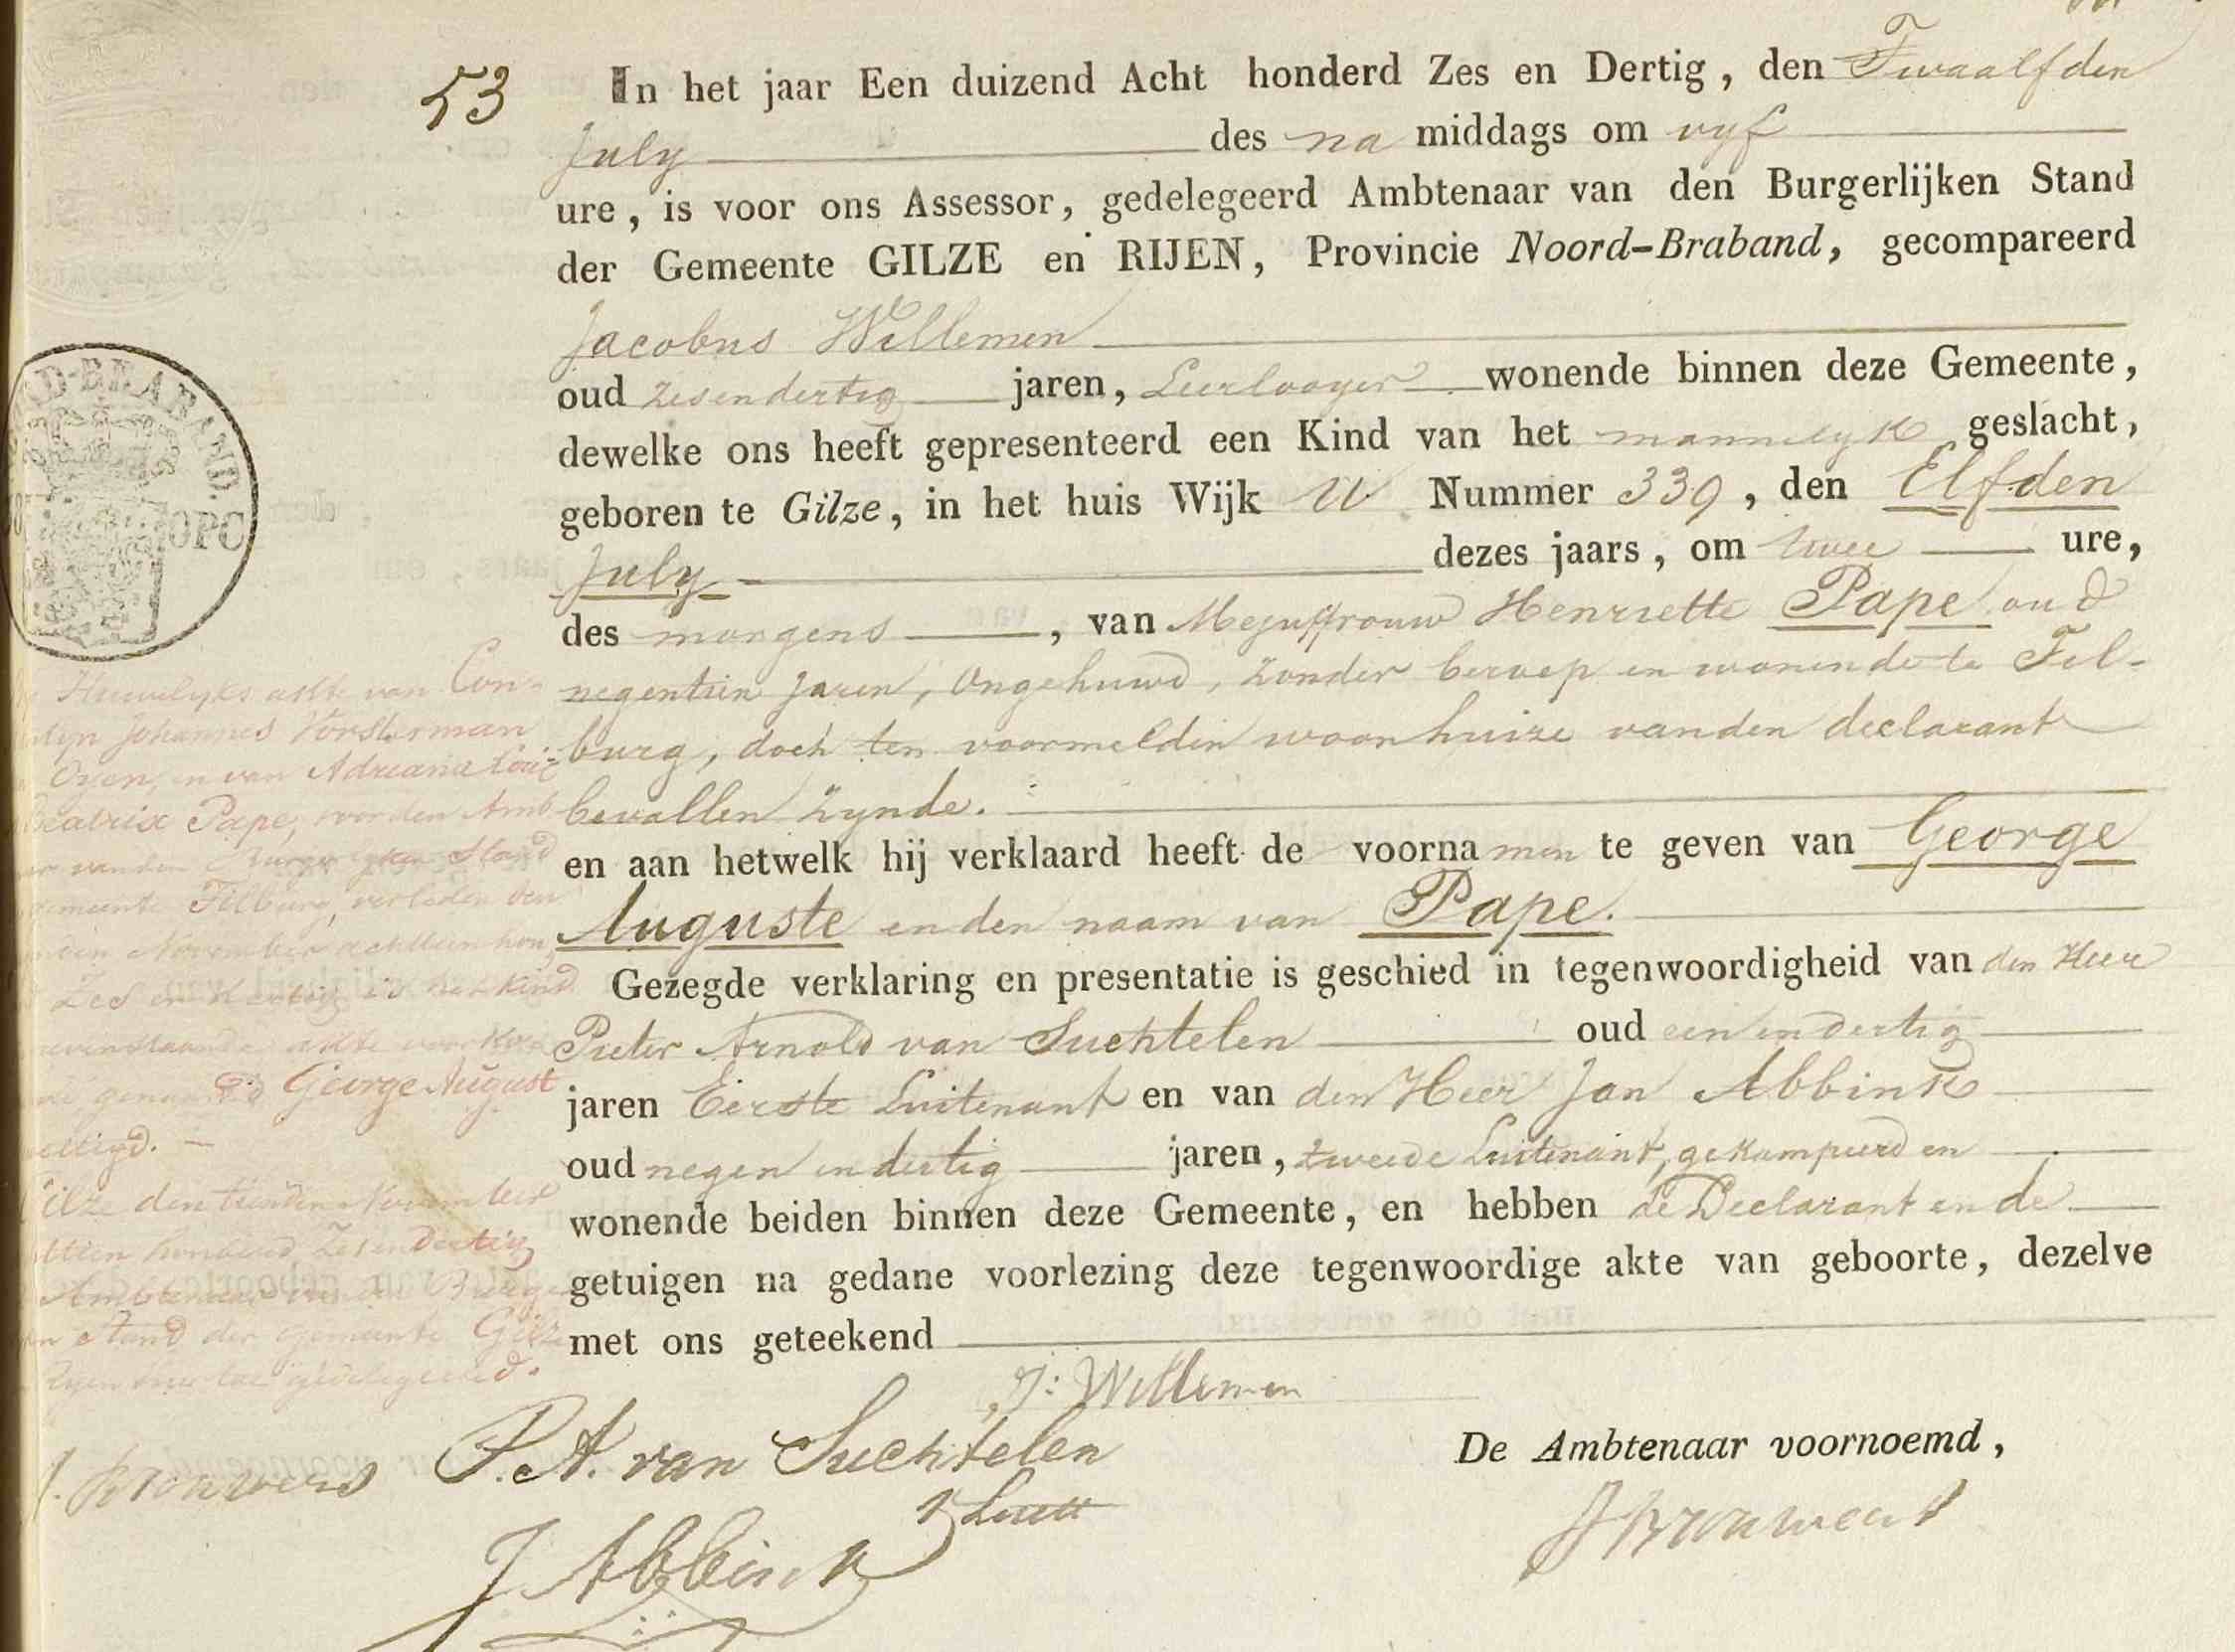 53
In het jaar Een duizend Acht honderd Zes en Dertig, den Twaalfden
July des na middags om vyf
ure, is voor ons Assessor, gedelegeerd Ambtenaar van den Burgerlijken Stand
der Gemeente GILZE en RIJEN, Provincie Noord-Braband, gecompareerd
Jacobus Willemen
oud zesendertig jaren, Leerlooyer wonende binnen deze Gemeente,
dewelke ons heeft gepresenteerd een Kind van het mannelyk geslacht,
geboren te Gilze, in het huis Wijk Nummer 339, den Elfden
July dezes jaars, om twee ure,
des morgens, van Mejuffrouw Henriette Pape oud
negentien jaren, ongehuwd, zonder beroep en wonende te Til-
burg, doch ten voormelden woonhuize van den declarant
bevallen zynde.
en aan hetwelk hij verklaard heeft de voornamen te geven van George
Auguste en den naam van Pape.
Gezegde verklaring en presentatie is geschied in tegenwoordigheid van den Heer
Pieter Arnold van Suchtelen oud een en dertig
jaren Eerste Luitenant en van den Heer Jan Abbink
oud negen en dertig jaren, tweede Luitenant, gekampeerd en
wonende beiden binnen deze Gemeente, en hebben de Declarant en de
getuigen na gedane voorlezing deze tegenwoordige akte van geboorte, dezelve
met ons geteekend
J: Willemen
P. A. van Suchtelen
1 Luitt
J Abbink
De Ambtenaar voornoemd,
J Brouwers
D-BRABAND.
OPC
Huwelyks akte van Con-
Johannes Vorsterman
Oyen, en van Adriana Loui-
Beatrix Pape, voor den Amb
van den Burgerlyken Stand
gemeente Tilburg, verleden den
November achttien hon
Zes en dertig is het kind
akte
George August
Gilze den tienden November
honderd zesendertig
Stand der gemeente Gilze
gedelegeerd.
J. Brouwers